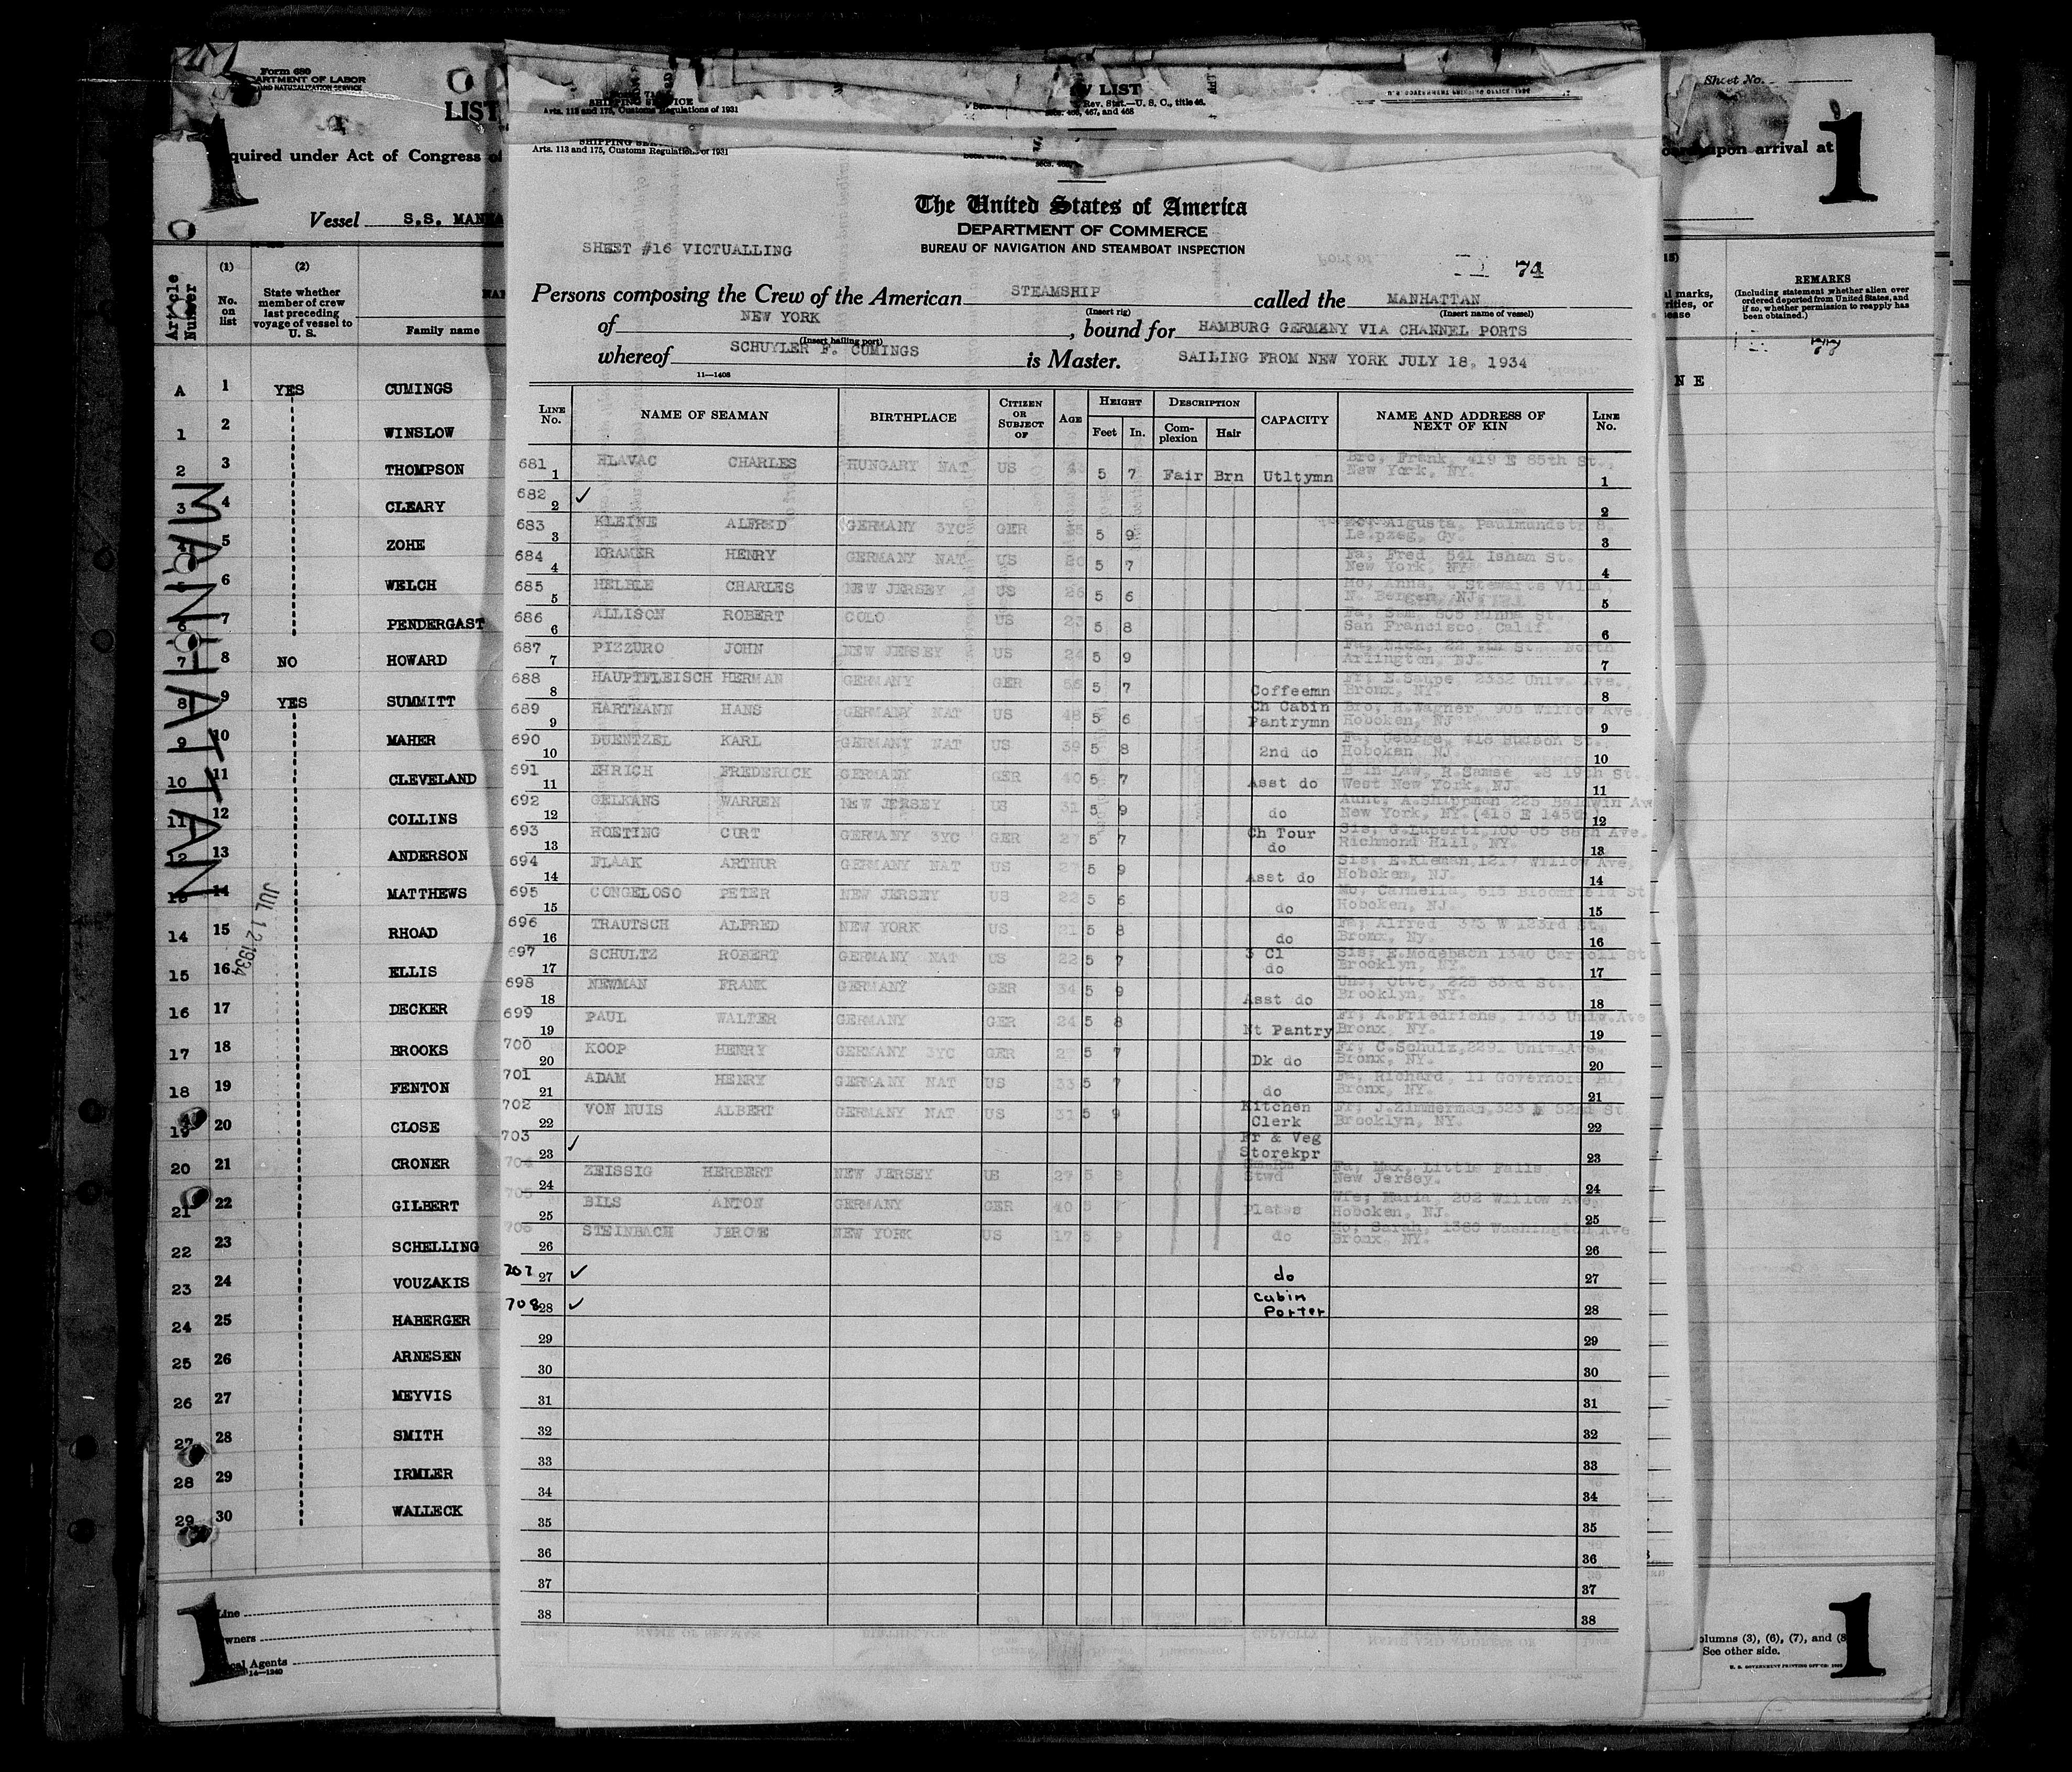 Form 680
DEPARTMENT OF LABOR
AND NATURALIZATION SERVICE
LIST
quired under Act of Congress of
Vessel S.S. MANHA
Article Number
(1) No. on list
(2) State whether member of crew last preceding voyage of vessel to U. S.
Family name
A 1 YES CUMINGS
1 2 WINSLOW
2 3 THOMPSON
3 4 CLEARY
5 ZOHE
6 WELCH
6 7 PENDERGAST
7 8 NO HOWARD
8 9 YES SUMMITT
9 10 MAHER
10 11 CLEVELAND
11 12 COLLINS
12 13 ANDERSON
13 14 MATTHEWS
14 15 RHOAD
15 16 ELLIS
16 17 DECKER
17 18 BROOKS
18 19 FENTON
19 20 CLOSE
20 21 CRONER
21 22 GILBERT
22 23 SCHELLING
23 24 VOUZAKIS
24 25 HABERGER
25 26 ARNESEN
26 27 MEYVIS
27 28 SMITH
28 29 IRMLER
29 30 WALLECK
MANHATTAN
JUL 12 1934
1
1
Line
Owners
Local Agents
14—1240
SHIPPING SERVICE
Arts. 113 and 175, Customs Regulations of 1931
W LIST
Rev. Stat.—U. S. C., title 46,
secs. 465, 467, and 468
Arts. 113 and 175, Customs Regulations of 1931
The United States of America
DEPARTMENT OF COMMERCE
BUREAU OF NAVIGATION AND STEAMBOAT INSPECTION
SHEET #16 VICTUALLING
74
Persons composing the Crew of the American STEAMSHIP called the MANHATTAN
(Insert rig) (Insert name of vessel)
of NEW YORK, bound for HAMBURG GERMANY VIA CHANNEL PORTS
(Insert hailing port)
whereof SCHUYLER F. CUMINGS is Master. SAILING FROM NEW YORK JULY 18, 1934
11—1408
LINE No. NAME OF SEAMAN BIRTHPLACE CITIZEN OR SUBJECT OF AGE HEIGHT Feet In. DESCRIPTION Complexion Hair CAPACITY NAME AND ADDRESS OF NEXT OF KIN LINE No.
681 1 HLAVAC CHARLES HUNGARY NAT US 5 7 Fair Brn Utltymn Bro, Frank, 419 E 85th St., New York, NY. 1
682 2 ✓ 2
683 3 KLEINE ALFRED GERMANY 3YC GER 35 5 9 Leipzeg, Gy. 3
684 4 KRAMER HENRY GERMANY NAT US 20 5 7 Fa, Fred 541 Isham St. New York, NY 4
685 5 HELBLE CHARLES NEW JERSEY US 26 5 6 Mo, Anna, Stewarts Villa, N. Bergen, NJ. 5
686 6 ALLISON ROBERT COLO US 23 5 8 Fa, Sam, 605 Minna St. San Francisco, Calif. 6
687 7 PIZZURO JOHN NEW JERSEY US 24 5 9 Fa, Nick, 22 4th St. North Arlington, NJ. 7
688 8 HAUPTFLEISCH HERMAN GERMANY GER 56 5 7 Coffeemn Fr; E.Saupe, 2332 Univ. Ave., Bronx, NY. 8
689 9 HARTMANN HANS GERMANY NAT US 48 5 6 Ch Cabin Pantrymn Bro; H.Wagner, 905 Willow Ave. Hoboken, NJ 9
690 10 DUENTZEL KARL GERMANY NAT US 39 5 8 2nd do Fa, George, 418 Hudson St., Hoboken NJ. 10
691 11 EHRICH FREDERICK GERMANY GER 40 5 7 Asst do B in Law, R.Samse 48 19th St. West New York, NJ. 11
692 12 GELKANS WARREN NEW JERSEY US 31 5 9 do Aunt, A.Shippman 225 Baldwin Av New York, NY.(415 E 145th 12
693 13 HOETING CURT GERMANY 3YC GER 27 5 7 Ch Tour do Sis; G.Luperti, 100-05 88th Ave. Richmond Hill, NY. 13
694 14 FLAAK ARTHUR GERMANY NAT US 27 5 9 Asst do Sis; E.Kleman, 1217 Willow Ave, Hoboken, NJ. 14
695 15 CONGELOSO PETER NEW JERSEY US 22 5 6 do Mo, Carmella, 615 Bloomfield St Hoboken, NJ. 15
696 16 TRAUTSCH ALFRED NEW YORK US 21 5 8 do Fa; Alfred 373 W 123rd St. Bronx, Ny. 16
697 17 SCHULTZ ROBERT GERMANY NAT US 22 5 7 3 Cl do Sis; E.Modebach 1340 Carroll St Brooklyn, NY. 17
698 18 NEWMAN FRANK GERMANY GER 34 5 9 Asst do Unc; Otto, 225 83rd St., Brooklyn, NY. 18
699 19 PAUL WALTER GERMANY GER 24 5 8 Nt Pantry Fr; A.Friedrichs, 1733 Univ.Ave Bronx, NY. 19
700 20 KOOP HENRY GERMANY 3YC GER 5 7 Dk do Fr; C.Schulz, 2291 Univ.Ave. Bronx, NY. 20
701 21 ADAM HENRY GERMANY NAT US 33 5 7 do Fa; Richard, 11 Governors Bronx, NY. 21
702 22 VON NUIS ALBERT GERMANY NAT US 31 5 9 Kitchen Clerk Fr; J.Zimmerman, 323 52nd St Brooklyn, NY. 22
703 23 ✓ Fr & Veg Storekpr 23
704 24 ZEISSIG HERBERT NEW JERSEY US 27 5 8 Stwd Fa; Max, Little Falls New Jersey. 24
705 25 BILS ANTON GERMANY GER 40 5 7 Plates Wfe; Maria, 202 Willow Ave, Hoboken, NJ. 25
706 26 STEINBACH JEROME NEW YORK US 17 5 9 do Mo, Sarah, 1380 Washington Ave Bronx, NY. 26
707 27 ✓ do 27
708 28 ✓ Cabin Porter 28
29 29
30 30
31 31
32 32
33 33
34 34
35 35
36 36
37 37
38 38
Sheet No.
upon arrival at
1
REMARKS
(Including statement whether alien ever ordered deported from United States, and if so, whether permission to reapply has been obtained.)
NE
olumns (3), (6), (7), and (8
See other side.
U. S. GOVERNMENT PRINTING OFFICE
1